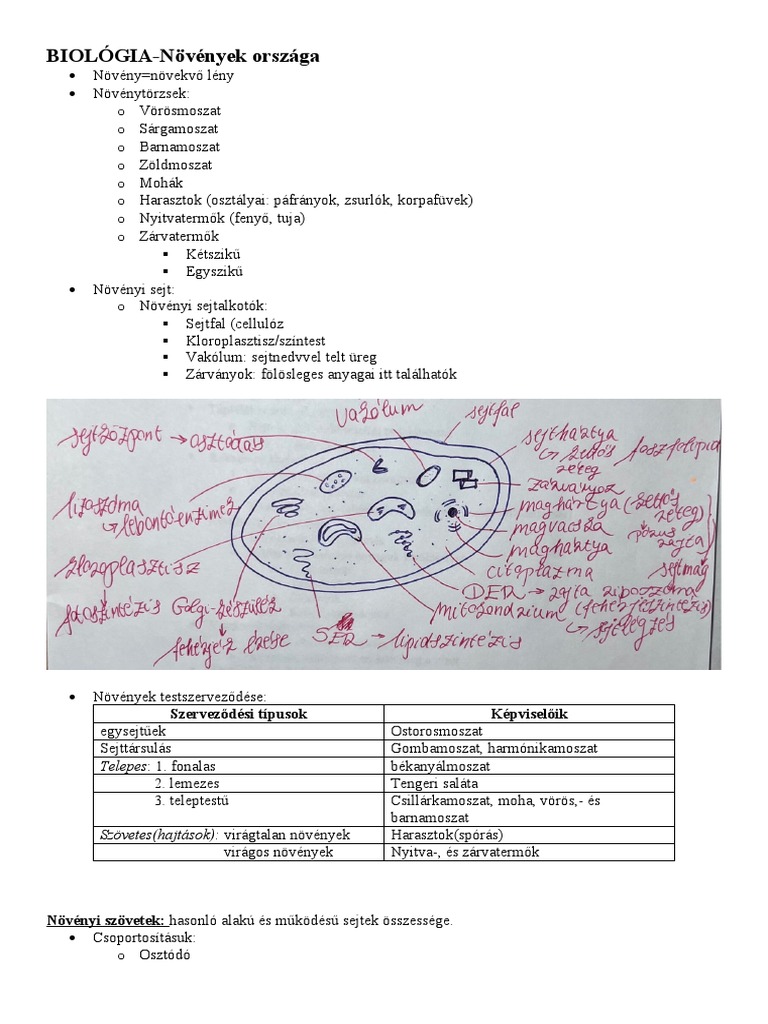 BIOLÓGIA-Növények országa
• Növény=növekvő lény
• Növénytörzsek:
o Vörösmoszat
o Sárgamoszat
o Barnamoszat
o Zöldmoszat
o Mohák
o Harasztok (osztályai: páfrányok, zsurlók, korpafüvek)
o Nyitvatermők (fenyő, tuja)
o Zárvatermők
▪ Kétszikű
▪ Egyszikű
• Növényi sejt:
o Növényi sejtalkotók:
▪ Sejtfal (cellulóz
▪ Kloroplasztisz/színtest
▪ Vakólum: sejtnedvvel telt üreg
▪ Zárványok: fölösleges anyagai itt találhatók
vakólum
sejtfal
sejtközpont → osztódás
sejthártya
↳ kettős foszfolipid
réteg
zárványok
lizoszóma
↳ lebontó enzimek
maghártya (kettős
réteg)
magvacska
maghártya
pórus
rajta
sejtmag
kloroplasztisz
citoplazma
DER → rajta riboszóma
(fehérjeszintézis)
fotoszintézis
Golgi-készülék
mitokondrium
↳ sejtlégzés
fehérjék érése
SER → lipidszintézis
• Növények testszerveződése:
Szerveződési típusok Képviselőik
egysejtűek Ostorosmoszat
Sejttársulás Gombamoszat, harmónikamoszat
Telepes: 1. fonalas békanyálmoszat
2. lemezes Tengeri saláta
3. teleptestű Csillárkamoszat, moha, vörös,- és
barnamoszat
Szövetes(hajtások): virágtalan növények Harasztok(spórás)
virágos növények Nyitva-, és zárvatermők
Növényi szövetek: hasonló alakú és működésű sejtek összessége.
• Csoportosításuk:
o Osztódó